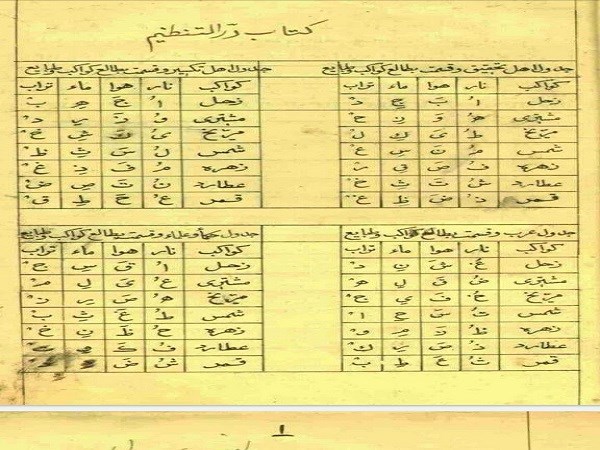 كتاب درّ التنظيم
جدول اهل تحقيق و قسمت بطالع كواكب و طبايع
كواكب نار هوا ماء تراب
زحل ا ب ج د
مشترى ه و ز ح
مريخ ط ى ك ل
شمس م ن س ع
زهره ف ص ق ر
عطارد ش ت ث خ
قمر ذ ض ظ غ
جدول اهل تكبير و قسمت بطالع كواكب و طبايع
كواكب نار هوا ماء تراب
زحل ا ج ه ب
مشترى و ز ر د
مريخ ى ك ش خ
شمس ل س ث ظ
زهره م ف ذ غ
عطارد ن ت ص ض
قمر ع ح ط ق
جدول عرب و قسمت بطالع كواكب و طبايع
كواكب نار هوا ماء تراب
زحل غ ش ن د
مشترى ض ق ل ه
مريخ خ ف ى ج
شمس ت س ح ا
زهره ظ ر م و
عطارد ذ ص ز ك
قمر ث ع ط ب
جدول حكما و علماء و قسمت بطالع كواكب و طبايع
كواكب نار هوا ماء تراب
زحل ا ق س ج
مشترى ع ى ل م
مريخ ه ص ر د
شمس ط غ ث ب
زهره ح ظ ن خ
عطارد ف ك
قمر ش ض
١